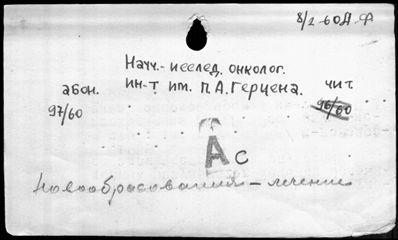 8/2-60 Д.Ф
Научн.-исслед. онколог.
абон. ин-т им. П.А. Герцена. чит
97/60 96/60
А с
Новообразования - лечение